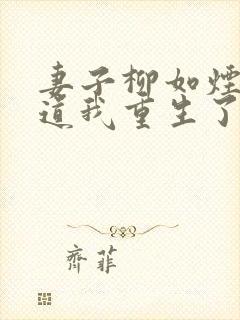 妻子柳如煙
道我重生了
齊菲